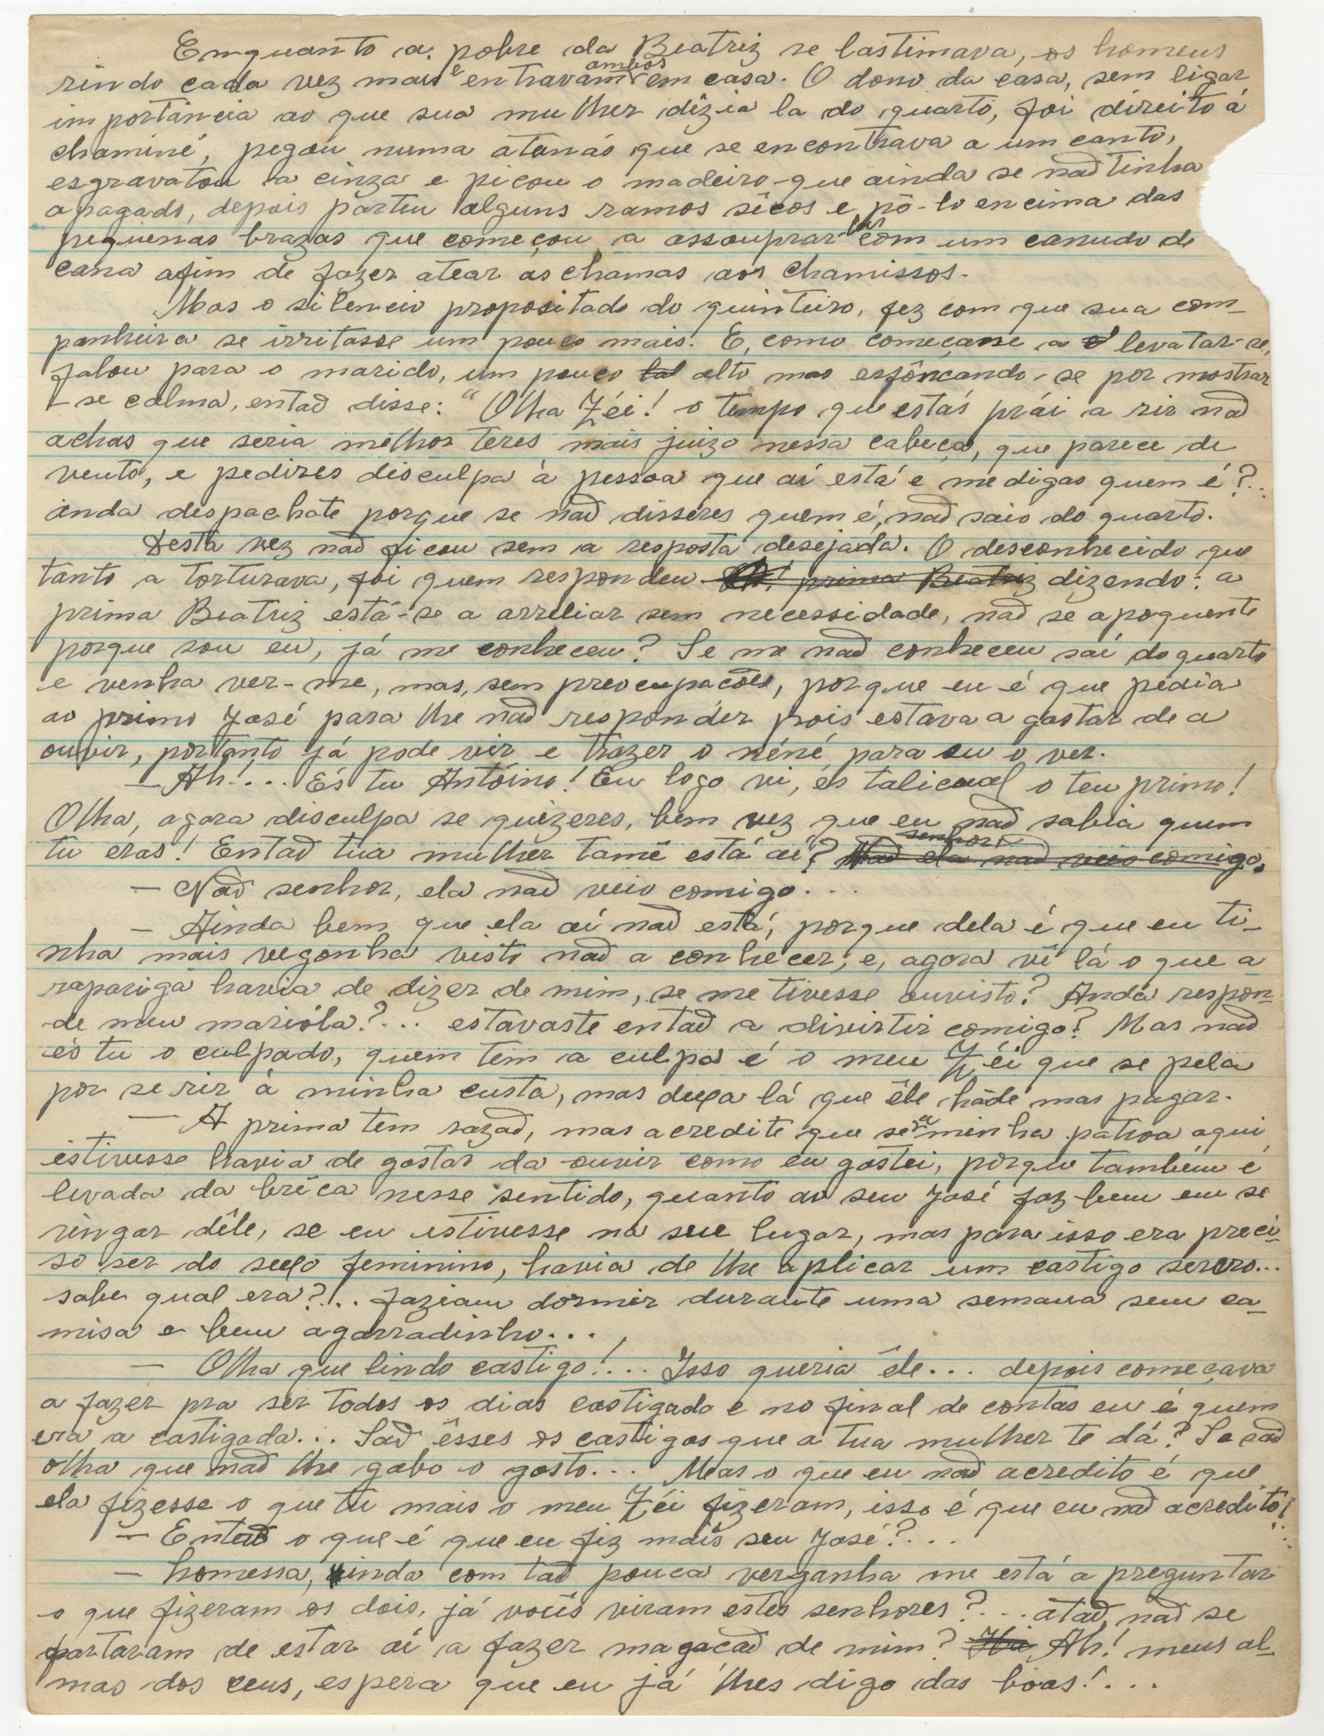 Emquanto a pobre da Beatriz se lastimava, os homens
rindo cada vez mais e entravam ambos em casa. O dono da casa, sem ligar
importância ao que sua mulher dizia la do quarto, foi direito á
chaminé, pegou numa atanás que se encontrava a um canto,
esgravatou a cinza e picou o madeiro que ainda se nað tinha
apagado, depois partiu alguns ramos sêcos e pô-lo encima das
pequenas brazas que começou a assouprar-las com um canudo de
cana afim de fazer atear ás chamas aos chamissos.
Mas o silencio propositado do quinteiro, fez com que sua com-
panheira se irritasse um pouco mais. E, como começasse a levatar-se,
falou para o marido, um pouco tal alto mas esfôrcando-se por mostrar
-se calma, entað disse: "Olha Zéi! o tempo que estás prái a rir nað
achas que seria milhor teres mais juizo nessa cabeça, que parece de
vento, e pedires disculpa à pessoa que aí está e me digas quem é?..
ànda despachate porque se nað disséres quem é, nað saio do quarto.
Desta vez nað ficou sem a resposta desejada. O desconhecido que
tanto a torturava, foi quem respondeu Oh! prima Beatriz dizendo: a
prima Beatriz está-se a arreliar sem necessidade, nað se apoquente
porque sou eu, já me conheceu? Se me nað conheceu saí do quarto
e venha ver-me, mas, sem preocupacões, porque eu é que pedia
ao primo José para lhe nað respondêr pois estava a gostar de a
ouvir, portanto já pode vir e trazer o néné para eu o ver.
— Ah!... És tu Antóino! Eu logo vi, és talicual o teu primo!
Olha, agora disculpa se quizeres, bem vez que eu nað sabia quem
tu eras! Entað tua mulher tamē está aí? Nað senhor ela nað veio comigo.
— Nað senhor, ela nað veio comigo...
— Ainda bem que ela aí nað está, porque dela é que eu ti-
nha mais vegonha visto nað a conhecer, e, agora vê lá o que a
rapariga havia de dizer de mim, se me tivesse ouvisto? Anda respon-
de meu marióla?... estavaste entað a divirtir comigo? Mas nað
és tu o culpado, quem tem a culpa é o meu Zéi que se pela
por se rir à minha custa, mas deixa lá que êle hàde mas pagar.
— A prima tem razað, mas acredite que se a minha patroa aqui
estivesse havia de gostar da ouvir como eu gostei, porque também é
levada da brêca nesse sentido, quanto ao seu José faz bem em se
vingar dêle, se eu estivesse na sue lugar, mas para isso era preci-
so ser do sexo feminino, havia de lhe aplicar um castigo servero...
sabe qual era?!.. faziam dormir durante uma semana sem ca-
misa e bem agarradinho...,
— Olha que lindo castigo!... Isso queria êle... depois começava
a fazer pra ser todos os dias castigado e no final de contas eu é quem
era a castigada... Sað êsses os castigos que a tua mulher te dá? Se sað
olha que nað lhe gabo o gosto... Mas o que eu nað acredito é que
ela fizesse o que tu mais o meu Zéi fizeram, isso é que eu nað acredito!..
— Entað o que é que eu fiz mais seu José?...
— homessa, inda com tað pouca verganha me está a preguntar
o que fizeram os dois, já voûs viram estes senhores?... atað, nað se
fartaram de estar aí a fazer magacað de mim? Ah! meus al-
mas dos ceus, espera que eu já lhes digo das boas!...